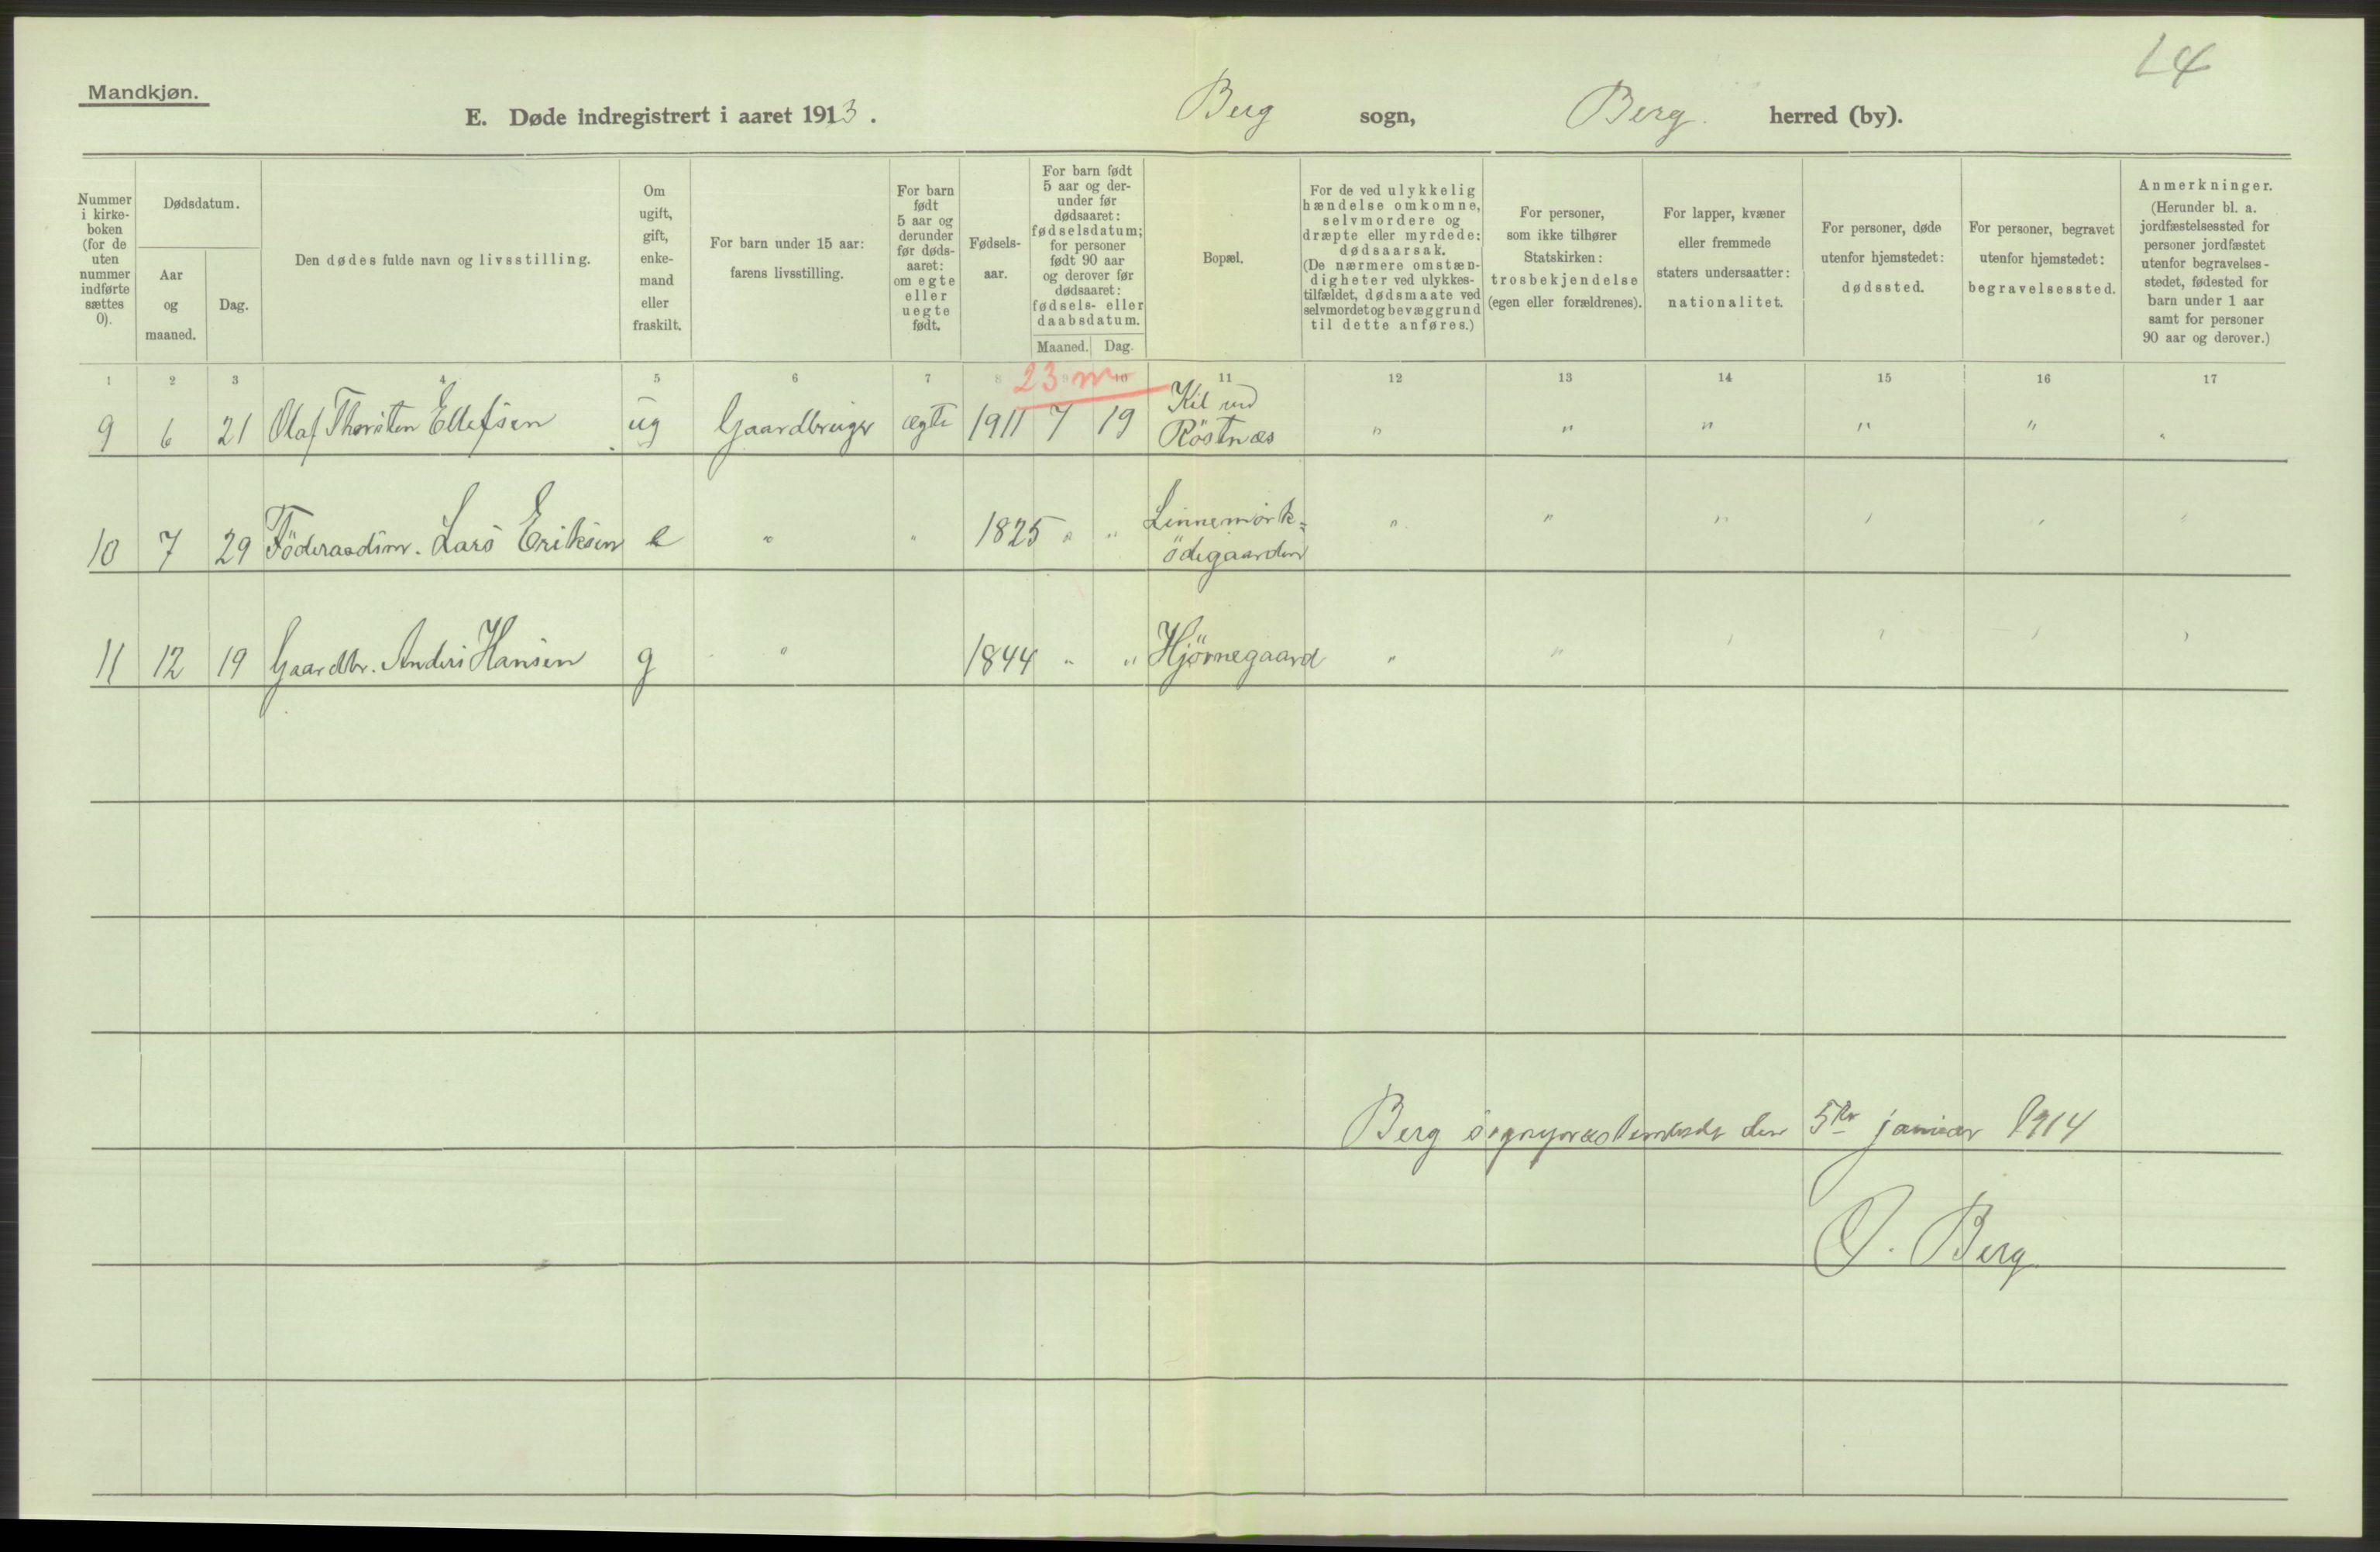 14
Mandkjøn.
E. Døde indregistrert i aaret 1913. Berg sogn, Berg. herred (by).
Nummer
i kirke-
boken
(for de
uten
nummer
indførte
sættes
0).
Dødsdatum.
Aar
og
maaned.
Dag.
Den dødes fulde navn og livsstilling.
Om
ugift,
gift,
enke-
mand
eller
fraskilt.
For barn under 15 aar:
farens livsstilling.
For barn
født
5 aar og
derunder
før døds-
aaret:
om egte
eller
uegte
født.
Fødsels-
aar.
For barn født
5 aar og der-
under før
dødsaaret:
fødselsdatum;
for personer
født 90 aar
og derover før
dødsaaret:
fødsels- eller
daabsdatum.
Maaned. Dag.
Bopæl.
For de ved ulykkelig
hændelse omkomne,
selvmordere og
dræpte eller myrdede:
dødsaarsak.
(De nærmere omstæn-
digheter ved ulykkes-
tilfældet, dødsmaate ved
selvmordet og bevæggrund
til dette anføres.)
For personer,
som ikke tilhører
Statskirken:
trosbekjendelse
(egen eller forældrenes).
For lapper, kvæner
eller fremmede
staters undersaatter:
nationalitet.
For personer, døde
utenfor hjemstedet:
dødssted.
For personer, begravet
utenfor hjemstedet:
begravelsessted.
Anmerkninger.
(Herunder bl. a.
jordfæstelsessted for
personer jordfæstet
utenfor begravelses-
stedet, fødested for
barn under 1 aar
samt for personer
90 aar og derover.)
1 2 3 4 5 6 7 8 9 10 11 12 13 14 15 16 17
23 m
9 6 21 Olaf Thorsten Ellefsen ug Gaardbruger ægte 1911 7 19 Kil ved
Röstnæs " " " " " "
10 7 29 Föderaadsm. Lars Eriksen e " " 1825 " " Linnemork=
ödegaarden " " " " " "
11 12 19 Gaardbr. Anders Hansen g " 1844 " " Hjörnegaard " " " " " "
Berg sogneprestembede den 5te januar 1914
O. Berg